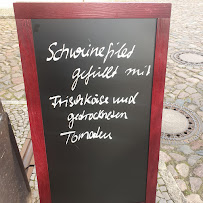 Schweinefilet
gefüllt mit
Frischkäse und
getrockneten
Tomaten